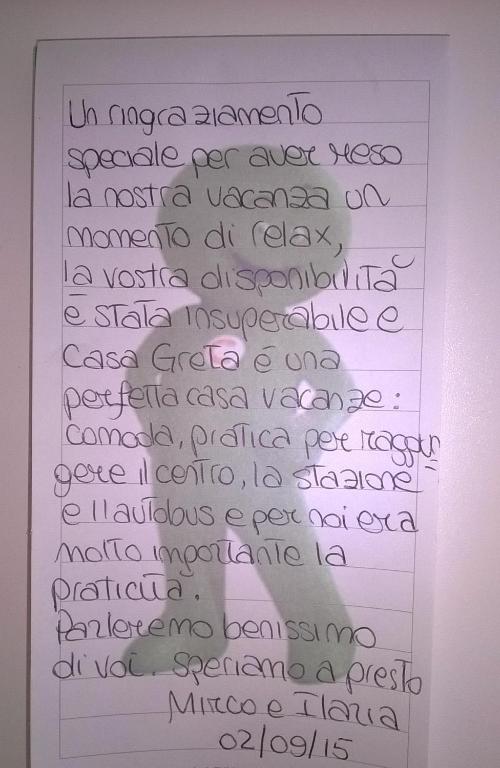 Un ringraziamento
speciale per aver reso
la nostra vacanza un
momento di relax,
la vostra disponibilità
è stata insuperabile e
Casa Greta è una
perfetta casa vacanze:
comoda, pratica per raggiun
gere il centro, la stazione
e l'autobus e per noi era
molto importante la
praticità.
Parleremo benissimo
di voi. Speriamo a presto
Mirco e Ilaria
02/09/15